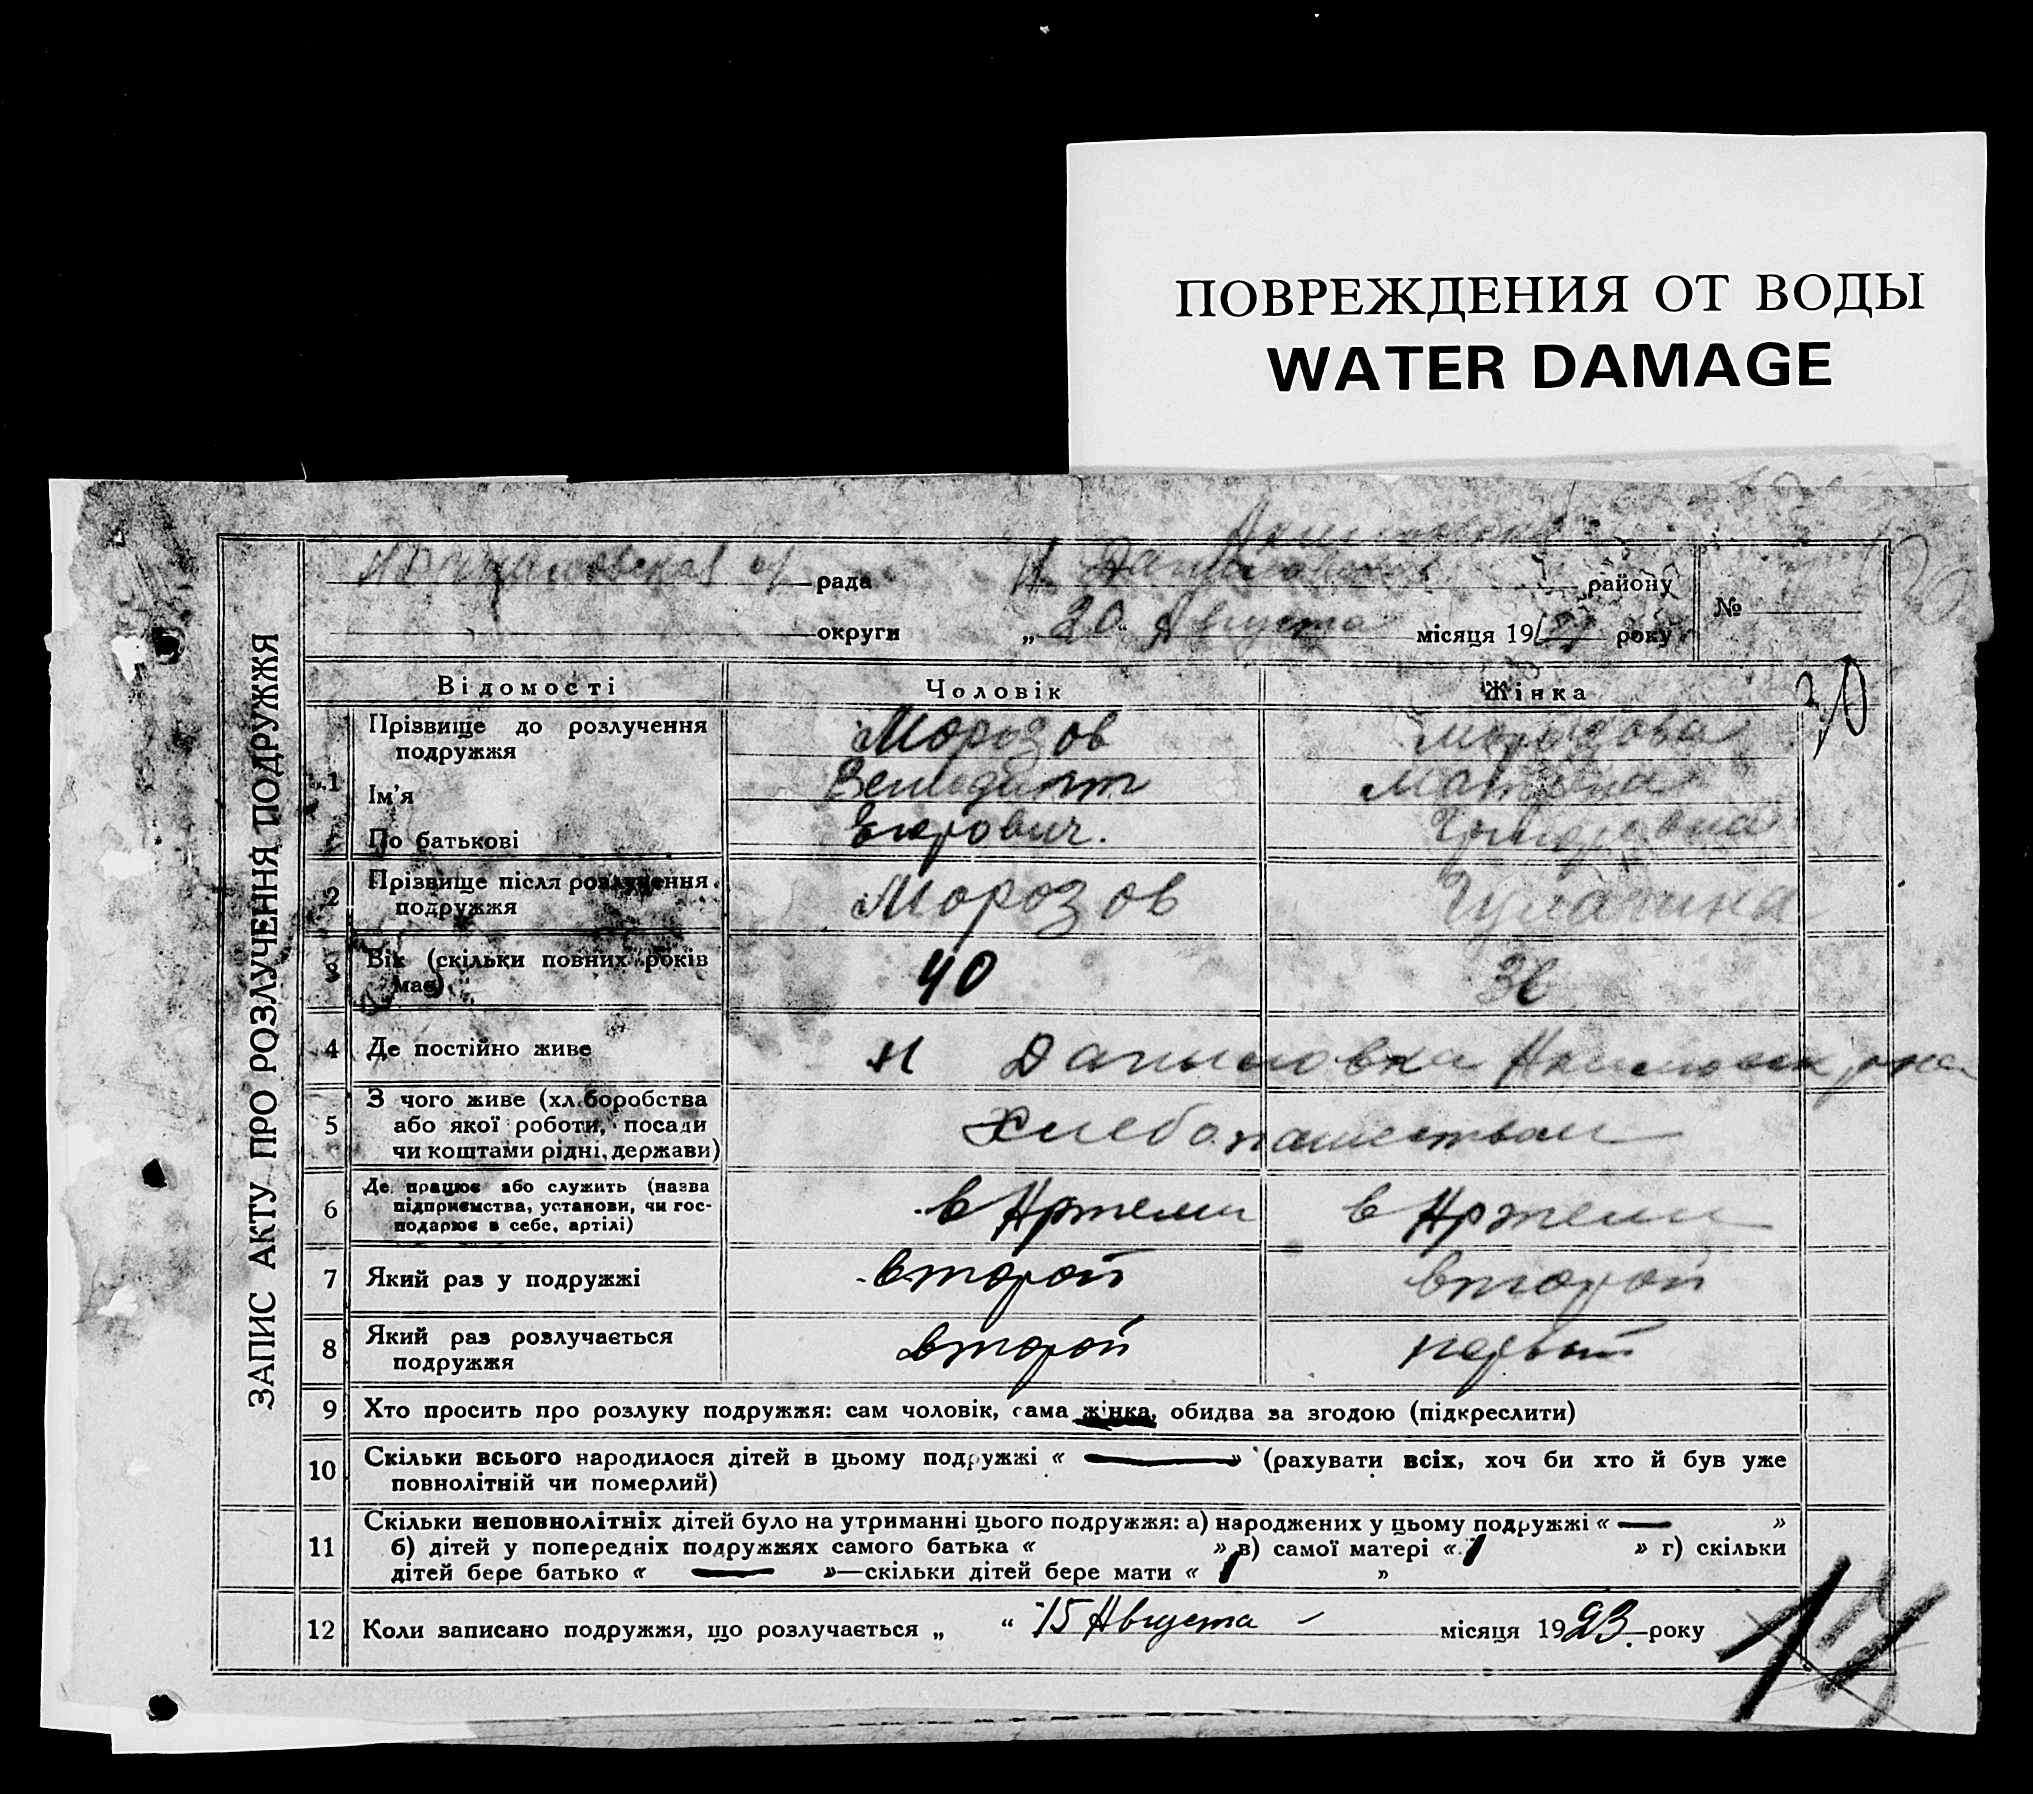 ПОВРЕЖДЕНИЯ ОТ ВОДЫ
WATER DAMAGE
ЗАПИС АКТУ ПРО РОЗЛУЧЕННЯ ПОДРУЖЖЯ
рада Н. району
№
округи „ 20 “ Августа місяця 19 року
Відомості Чоловік Жінка
1 Прізвище до розлучення подружжя Морозов Морозова
Ім'я Венедикт Матрена
По батькові Егорович.
2 Прізвище після розлучення подружжя Морозов
3 Вік (скільки повних років має) 40
4 Де постійно живе Н Даниловка
5 З чого живе (хліборобства
або якої роботи, посади
чи коштами рідні, держави)
Хлебопашеством
6 Де працює або служить (назва
підприємства, установи, чи гос-
подарює в себе, артілі)
в Артели в Артели
7 Який раз у подружжі второй второй
8 Який раз розлучається подружжя второй первый
9 Хто просить про розлуку подружжя: сам чоловік, сама жінка, обидва за згодою (підкреслити)
10 Скільки всього народилося дітей в цьому подружжі « — » (рахувати всіх, хоч би хто й був уже
повнолітній чи померлий)
11 Скільки неповнолітніх дітей було на утриманні цього подружжя: а) народжених у цьому подружжі « — »
б) дітей у попередніх подружжях самого батька « » в) самої матері « 1 » г) скільки
дітей бере батько « — »—скільки дітей бере мати « 1 »
12 Коли записано подружжя, що розлучається „ “ 15 Августа — місяця 1923 року